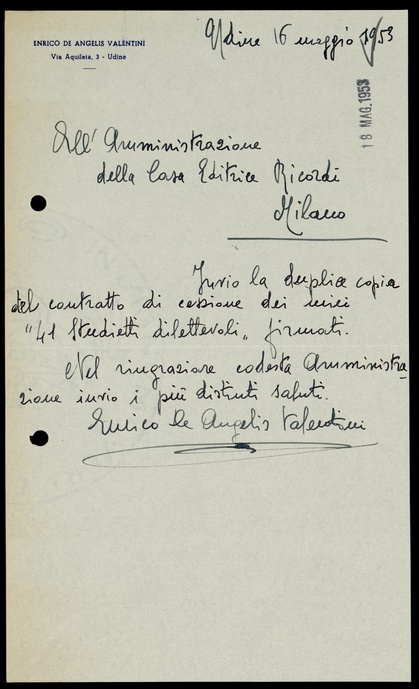 ENRICO DE ANGELIS VALENTINI
Via Aquileia, 3 - Udine
Udine 16 maggio 1953
18 MAG. 1953
All' Amministrazione
della Casa Editrice Ricordi
Milano
Invio la duplice copia
del contratto di cessione dei miei
"41 Studietti dilettevoli" firmati.
Nel ringraziare codesta Amministra-
zione invio i più distinti saluti.
Enrico De Angelis Valentini